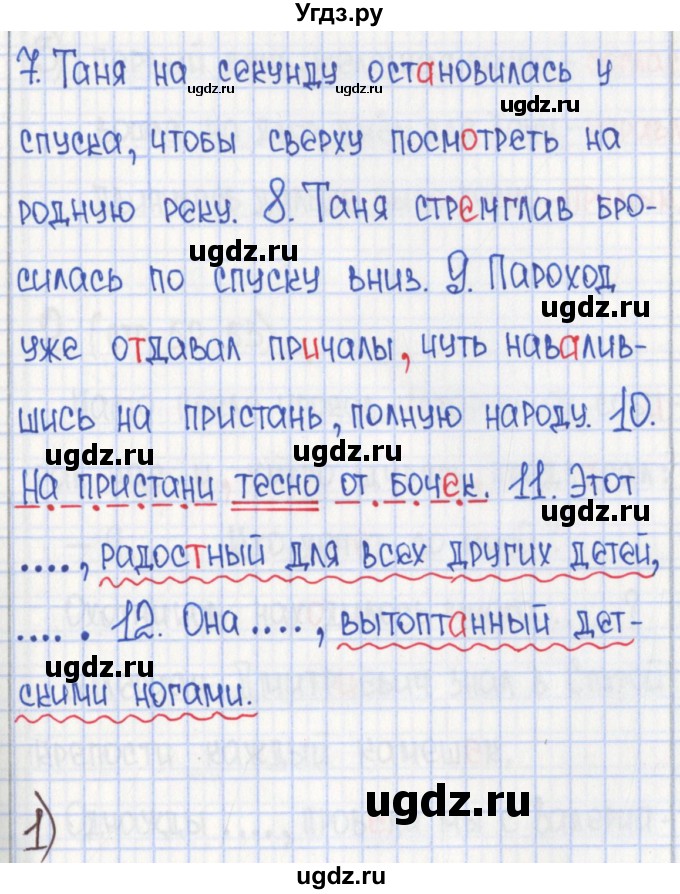 Угдз.ру
7. Таня на секунду остановилась у
ugdz.ru ugdz.ru
спуска, чтобы сверху посмотреть на
родную реку. 8. Таня стремглав бро-
ugdz.ru
силась по спуску вниз. 9. Пароход
ugdz.ru
уже отдавал причалы, чуть навалив-
шись на пристань, полную народу. 10.
ugdz.ru ugdz.ru
На пристани тесно от бочек. 11. Этот
ugdz.ru
...., радостный для всех других детей,
..... 12. Она ...., вытоптанный дет-
ugdz.ru
скими ногами.
ugdz.ru
1)
ugdz.ru